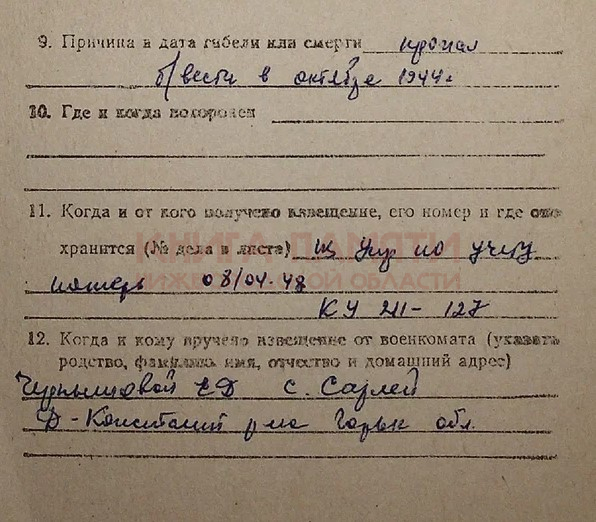 9. Причина и дата гибели или смерти пропал
б/вести в октябре 1944 г
10. Где и когда похоронен
11. Когда и от кого получено извещение, его номер и где оно
хранится (№ дела и листа) из упр по учету
КНИГА ПАМЯТИ
потерь 08/04-48
НИЖЕГОРОДСКОЙ ОБЛАСТИ
КУ 211-127
12. Когда и кому вручено извещение от военкомата (указать
родство, фамилию, имя, отчество и домашний адрес)
ЕД с. Сарлей
Д-Константин р-на Горьк обл.